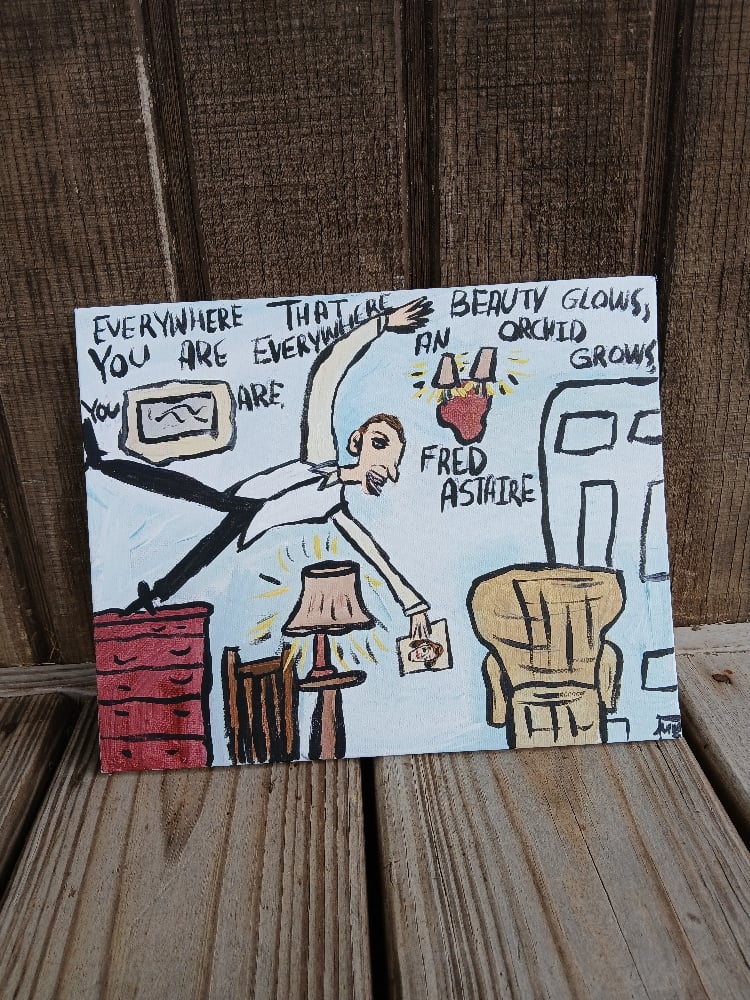 EVERYWHERE THAT BEAUTY GLOWS,
YOU ARE EVERYWHERE AN ORCHID
GROWS,
YOU ARE.
FRED
ASTAIRE